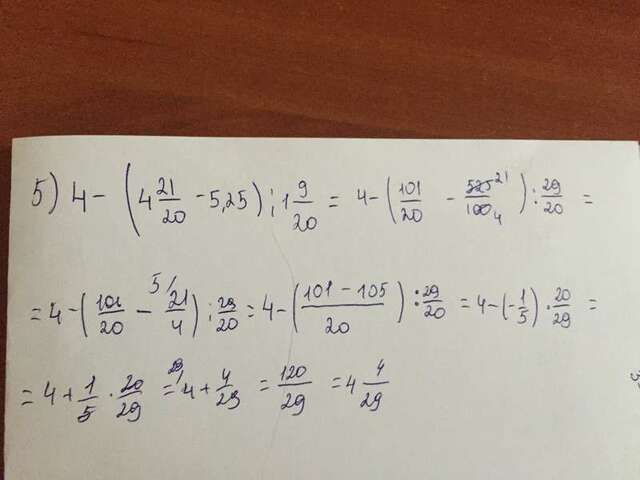 5) 4 - (4 21/20 - 5,25) : 1 9/20 = 4 - (101/20 - 525/100 21/4) : 29/20 =
= 4 - (101/20 - 5/ 21/4) : 29/20 = 4 - ((101 - 105)/20) : 29/20 = 4 - (-1/5) · 20/29 =
= 4 + 1/5 · 20/29 = 4 + 4/29 = 120/29 = 4 4/29